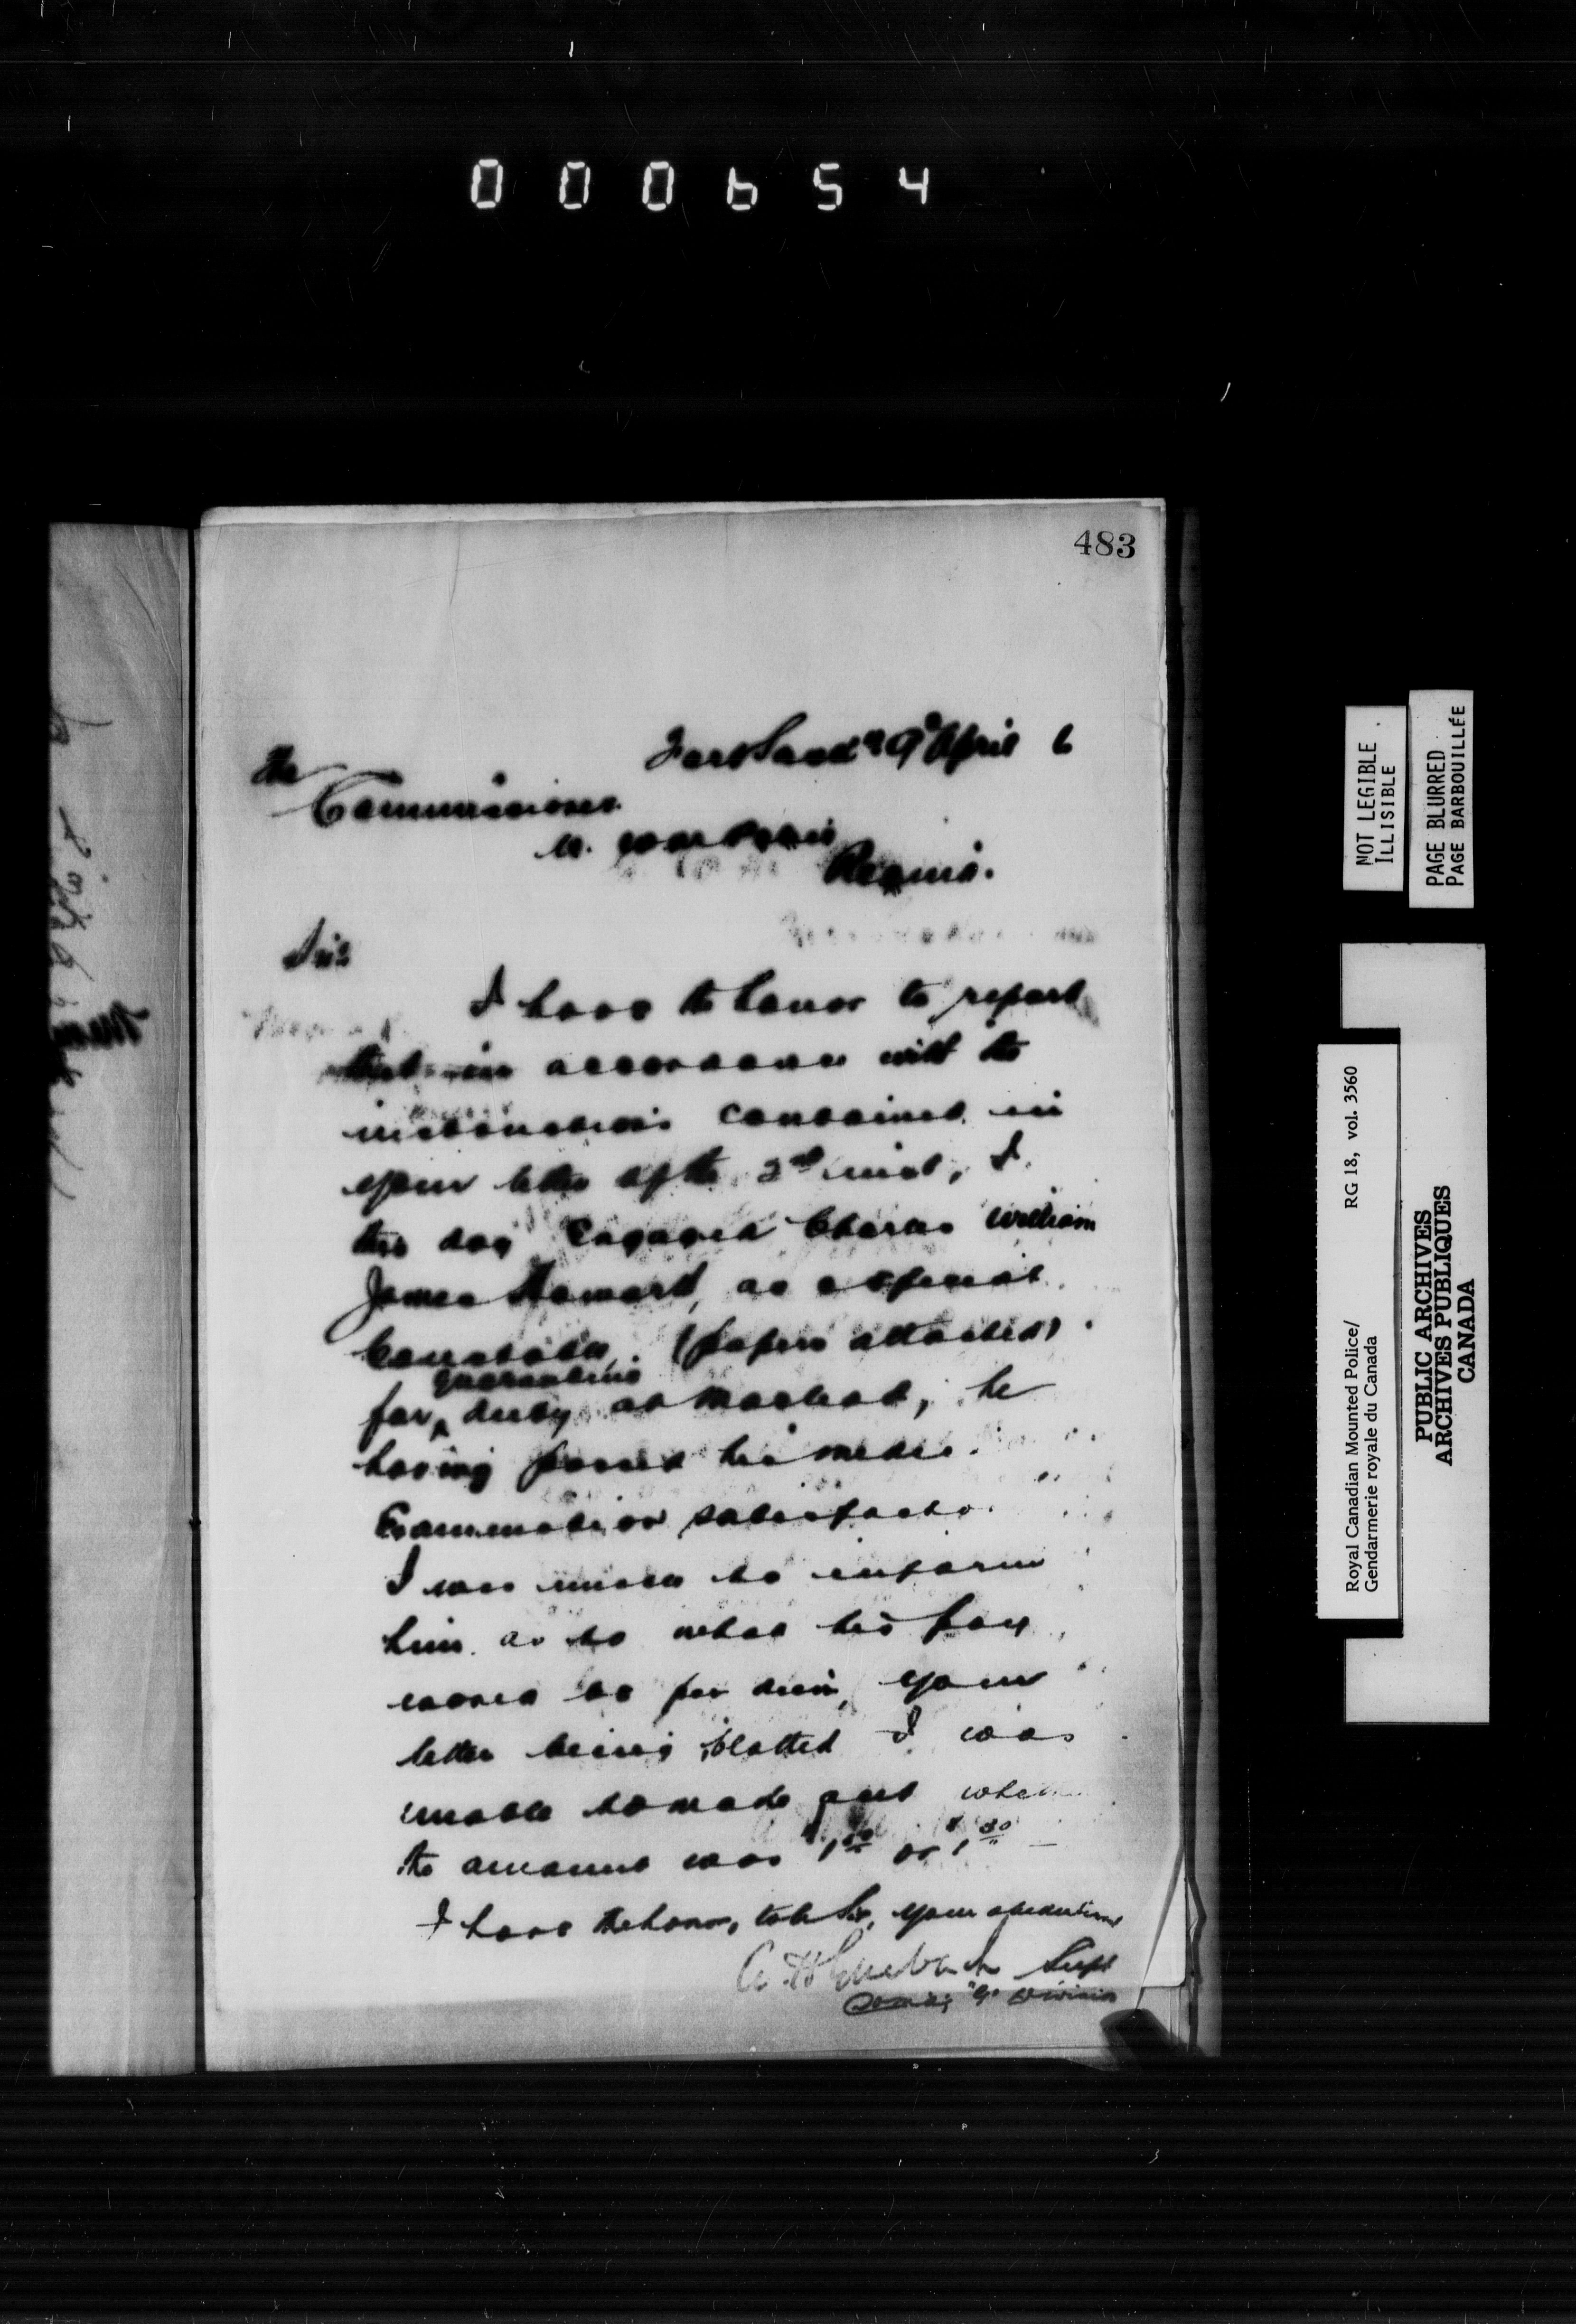 000654
483
Fort Sask 9th April 6
The
Commissioner
N. W. M. Police
Regina.
Sir
I have the honor to report
that in accordance with the
instructions contained in
your letter of the 2nd inst, I
this day Engaged Charles William
James Howard, as a special
Constable. (papers attached)
quarantine
for duty at Macleod, he
having passed his medic
Examination satisfacto
I was unable to inform
him as to what his pay
would be per diem, your
letter being blotted I was
unable to make out whether
the amount was 1 50 or 1 30
I have the honor, to be Sir, your obedient
A. H. Griesbach Supt
Comdg "G" Division
NOT LEGIBLE
ILLISIBLE
PAGE BLURRED
PAGE BARBOUILLÉE
Royal Canadian Mounted Police/ RG 18, vol. 3560
Gendarmerie royale du Canada
PUBLIC ARCHIVES
ARCHIVES PUBLIQUES
CANADA